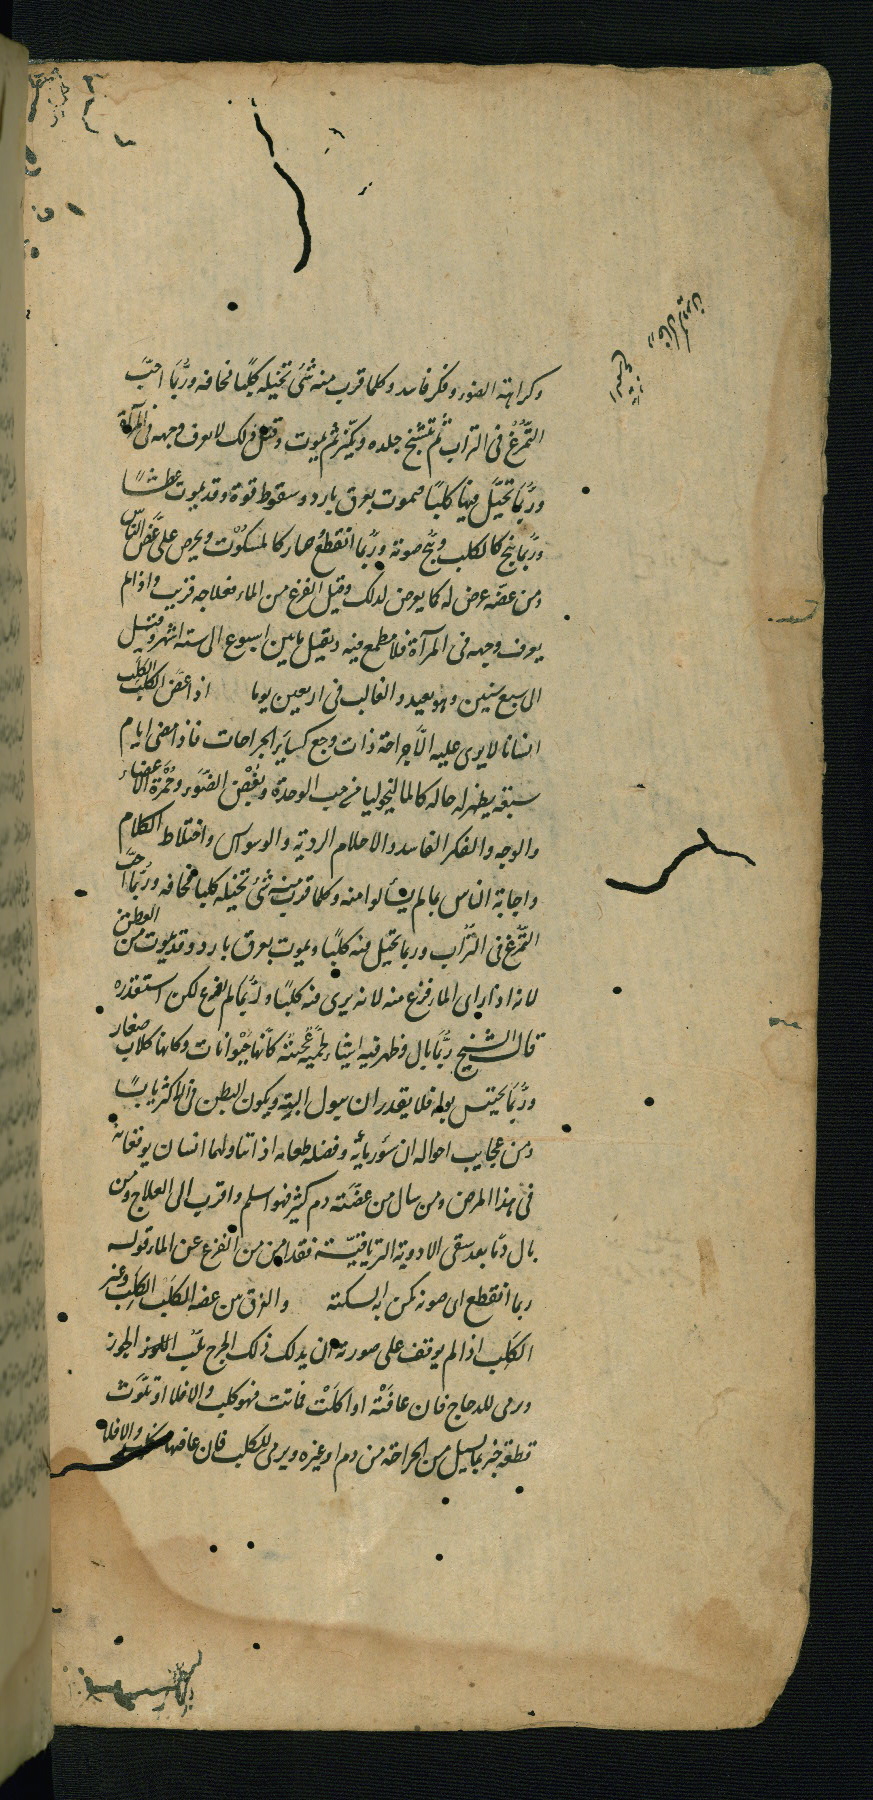 وكراهة الضوء وفكر فاسد وكلما قرب منه شئ تخيله كلبًا فخافه وربَّما احبّ
التمرُّغ فى التراب ثم تشنج جلده ويكزز ثم يموت وقبل ذلك لا يعرف وجهه فى المرآة
وربَّما تخيَّل فيها كلبًا فيموت بعرق بارد وسقوط قوة وقد يموت عطشًا
وربَّما ينبح كالكلب ويبح صوته وربَّما انقطع وصار كالمسكوت ويحرص على عضّ الناس
ومن عضّه عرض له كما يعرض لذلك وقبل الفزع من الماء فعلاجه قريب واذا لم
يعرف وجهه فى المرآة فلا مطمع فيه ويقتل ما بين اسبوع الى ستة اشهر وقيل
الى سبع سنين وهو بعيد والغالب فى اربعين يوما اذا عضّ الكلب الكَلِب
انسانا لا يرى عليه الّا جراحة ذات وجع كسائر الجراحات فاذا مضى ايام
سبعة يظهر له حاله كالماليخوليا من حب الوحدة وبغض الضوء وحمرة الاعضاء
والوجه والفكر الفاسد والاحلام الردية والوسواس واختلاط الكلام
واجابة الناس بما لم يسألوا منه وكلما قرب منه شئ تخيله كلبا فخافه وربَّما احبّ
التمرّغ فى التراب وربما تخيل فيه كلبًا ويموت بعرق بارد وقد يموت من العطش
لانه اذا راى الماء فزع منه لانه يرى فيه كلبًا وربَّما لم يفزع لكن استقذره
قال الشيخ ربَّما بال وظهر فيه اشياء لحميه عجيبة كأنّها حيوانات وكانها كلاب صغار
وربَّما يحتبس بوله فلا يقدر ان يبول البتة ويكون البطن فى الاكثر يابسًا
ومن عجايب احواله ان سؤر مائه وفضلة طعامه اذا تناولهما انسان يوقعانه
فى هذا المرض ومن سال من عضته دم كثير فهو اسلم واقرب الى العلاج ومن
بال دمًا بعد سقى الادوية الترياقيّة فقد امن من الفزع عن الماء قوله
ربما انقطع اى صوته كمن به السكتة والفرق من عضه الكلب الكَلِب وغير
الكَلِب اذا لم يوقف على صورته ان يدلك ذلك الجرح بلبّ اللوز الجوز
ويرمى للدجاج فان عافته او اكلت فماتت فهو كلب والا فلا او تلوّث
قطعة خبز بما يسيل من الجراحة من دم او غيره ويرمى للكلب فان عافها والا فلا